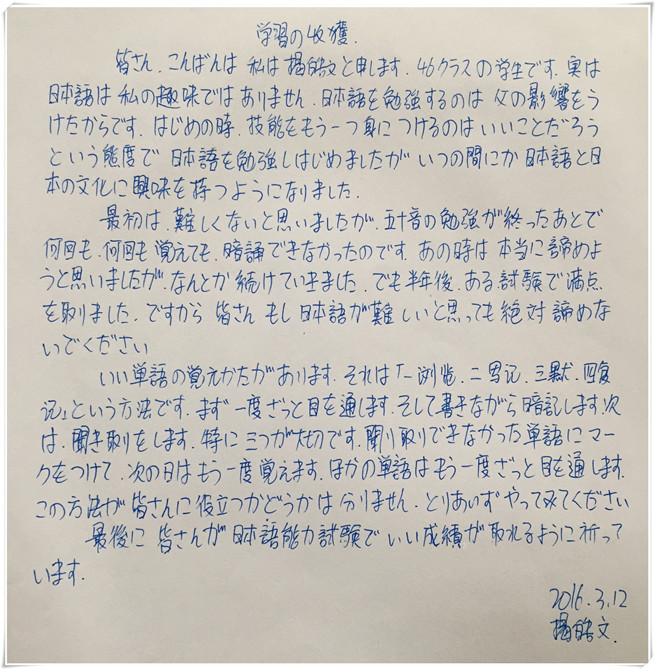 学習の收獲.
皆さん.こんばんは 私は楊皓文と申します. 46クラスの学生です. 実は
日本語は 私の趣味ではありません. 日本語を勉強するのは 父の影響をう
けたからです. はじめの時. 技能をもう一つ身につけるのは いいことだろう
という態度で 日本語を勉強しはじめましたが いつの間にか 日本語と日
本の文化に興味を持つようになりました.
最初は.難しくないと思いましたが.五十音の勉強が終ったあとで
何回も.何回も覚えても.暗誦できなかったのです. あの時は 本当に諦めよ
うと思いましたが.なんとか続けていきました. でも半年後.ある試験で満点
を取りました. ですから 皆さん もし日本語が難しいと思っても 絶対諦めな
いでください
いい単語の覚えかたがあります. それは「一浏览.二写记.三默.四复
记」という方法です. まず一度ざっと目を通します.そして書きながら暗記します.次
は.聞き取りをします. 特に三つが大切です. 聞り取りできなかった単語にマー
クをつけて.次の日は もう一度覚えます. ほかの単語は もう一度ざっと目を通します.
この方法が皆さんに役立つかどうかは分りません. とりあいず やってみてください
最後に 皆さんが日本語能力試験で いい成績が取れるように祈って
います.
2016.3.12
楊皓文.